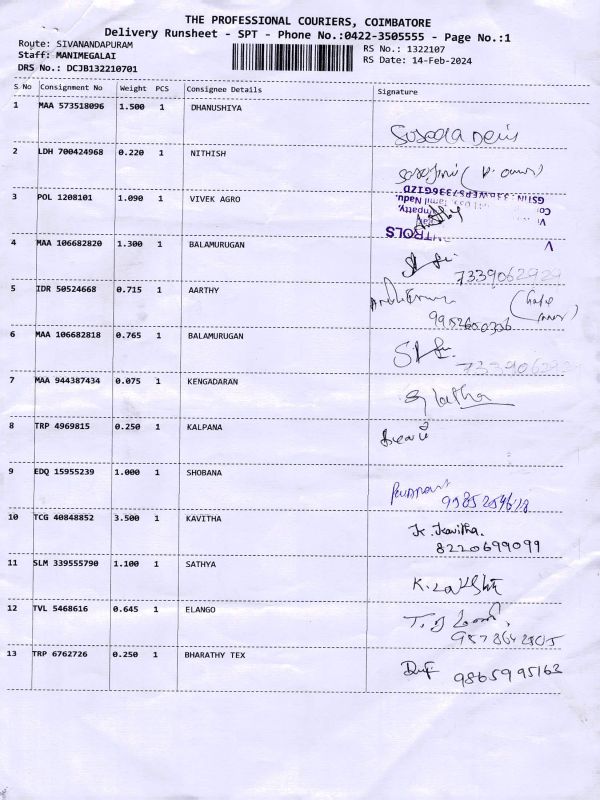 THE PROFESSIONAL COURIERS, COIMBATORE
Delivery Runsheet - SPT - Phone No.:0422-3505555 - Page No.:1
Route: SIVANANDAPURAM
RS No.: 1322107
Staff: MANIMEGALAI
RS Date: 14-Feb-2024
DRS No.: DCJB132210701
S No Consignment No Weight PCS Consignee Details Signature
1 MAA 573518096 1.500 1 DHANUSHIYA
2 LDH 700424968 0.220 1 NITHISH
3 POL 1208101 1.090 1 VIVEK AGRO
4 MAA 106682820 1.300 1 BALAMURUGAN
5 IDR 50524668 0.715 1 AARTHY
6 MAA 106682818 0.765 1 BALAMURUGAN
7 MAA 944387434 0.075 1 KENGADARAN
8 TRP 4969815 0.250 1 KALPANA
9 EDQ 15955239 1.000 1 SHOBANA
10 TCG 40848852 3.500 1 KAVITHA K. Kavitha.
8220699099
11 SLM 339555790 1.100 1 SATHYA
12 TVL 5468616 0.645 1 ELANGO
13 TRP 6762726 0.250 1 BHARATHY TEX 9865995163